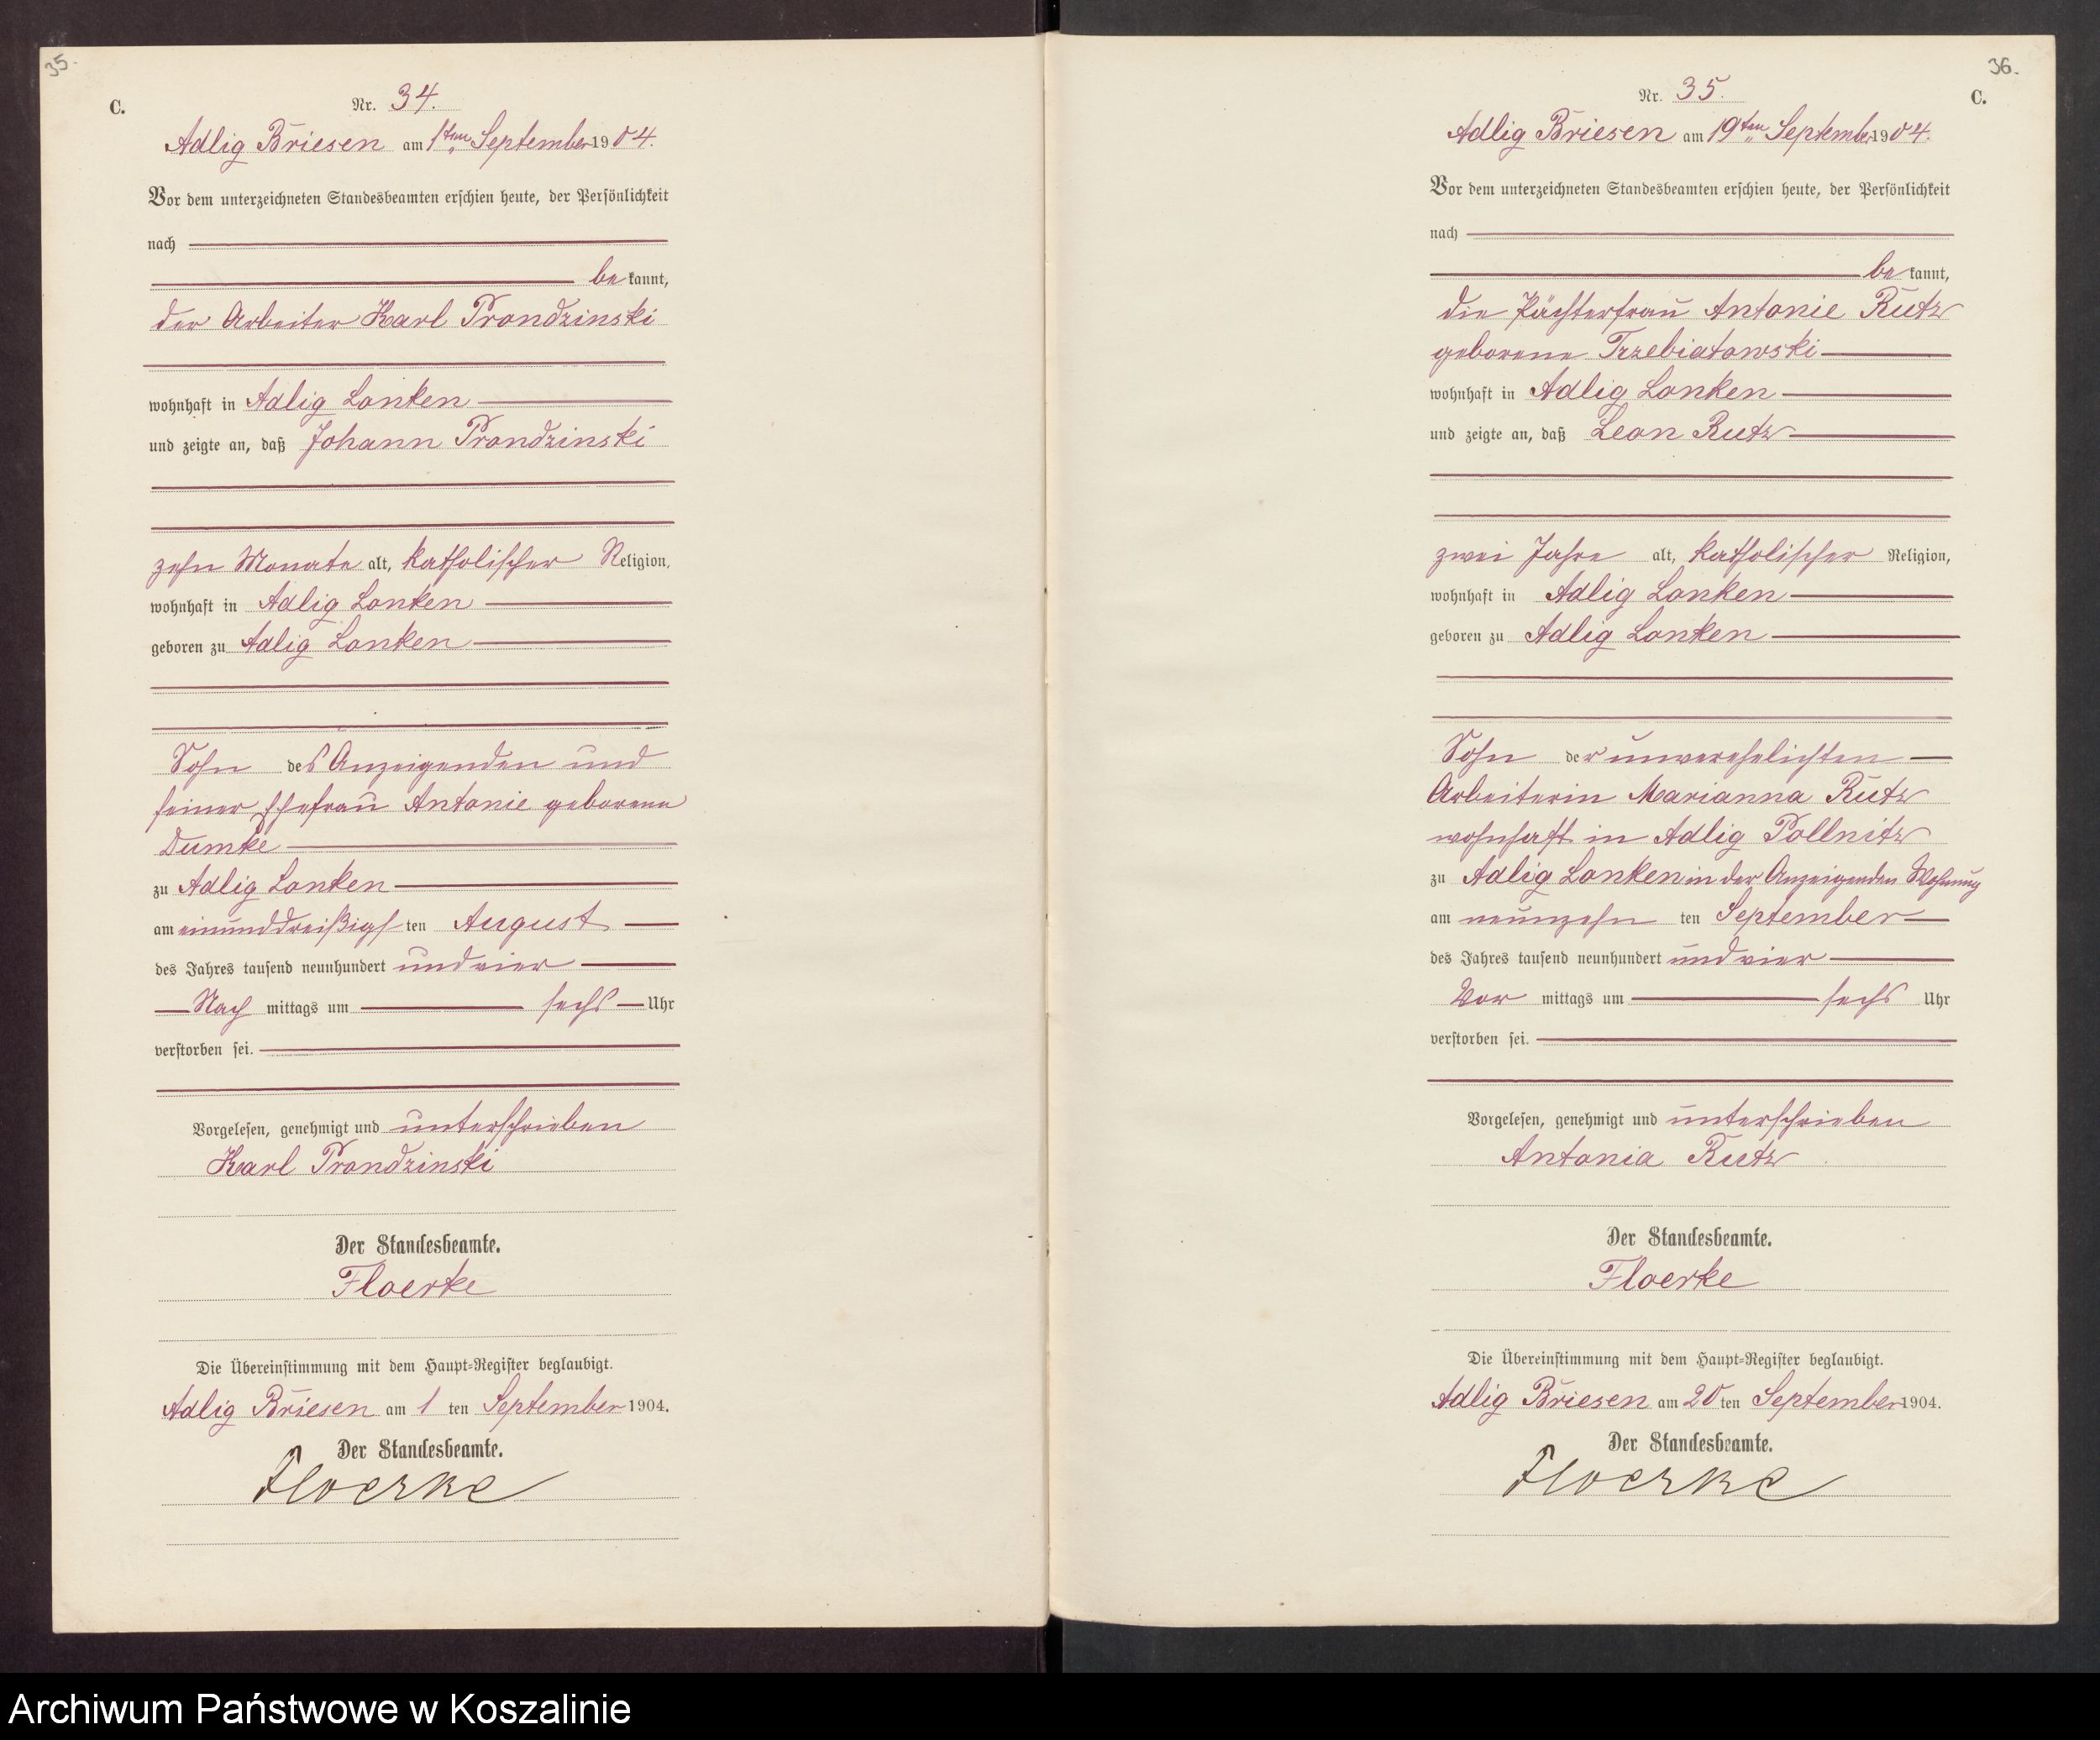 35.
C.
Nr. 34.
Adlig Briesen am 1ten September 1904.
Vor dem unterzeichneten Standesbeamten erschien heute, der Persönlichkeit
nach
bekannt,
der Arbeiter Karl Prondzinski
wohnhaft in Adlig Lonken
und zeigte an, daß Johann Prondzinski
zehn Monate alt, katholischer Religion,
wohnhaft in Adlig Lonken
geboren zu Adlig Lonken
Sohn des Anzeigenden und
seiner Ehefrau Antonie geborene
Dumke
zu Adlig Lonken
am einunddreißigsten August
des Jahres tausend neunhundert und vier
Nachmittags um sechs Uhr
verstorben sei.
Vorgelesen, genehmigt und unterschrieben
Karl Prondzinski
Der Standesbeamte.
Floerke
Die Übereinstimmung mit dem Haupt-Register beglaubigt.
Adlig Briesen am 1 ten September 1904.
Der Standesbeamte.
Floerke
36.
C.
Nr. 35.
Adlig Briesen am 19ten September 1904.
Vor dem unterzeichneten Standesbeamten erschien heute, der Persönlichkeit
nach
bekannt,
die Pächterfrau Antonie Rutz
geborene Trzebiatowski
wohnhaft in Adlig Lonken
und zeigte an, daß Leon Rutz
zwei Jahre alt, katholischer Religion,
wohnhaft in Adlig Lonken
geboren zu Adlig Lonken
Sohn der unverehelichten
Arbeiterin Marianna Rutz
wohnhaft in Adlig Pollnitz
zu Adlig Lonken in der Anzeigenden Wohnung
am neunzehn ten September
des Jahres tausend neunhundert und vier
Vormittags um sechs Uhr
verstorben sei.
Vorgelesen, genehmigt und unterschrieben
Antonia Rutz
Der Standesbeamte.
Floerke
Die Übereinstimmung mit dem Haupt-Register beglaubigt.
Adlig Briesen am 20 ten September 1904.
Der Standesbeamte.
Floerke
Archiwum Państwowe w Koszalinie